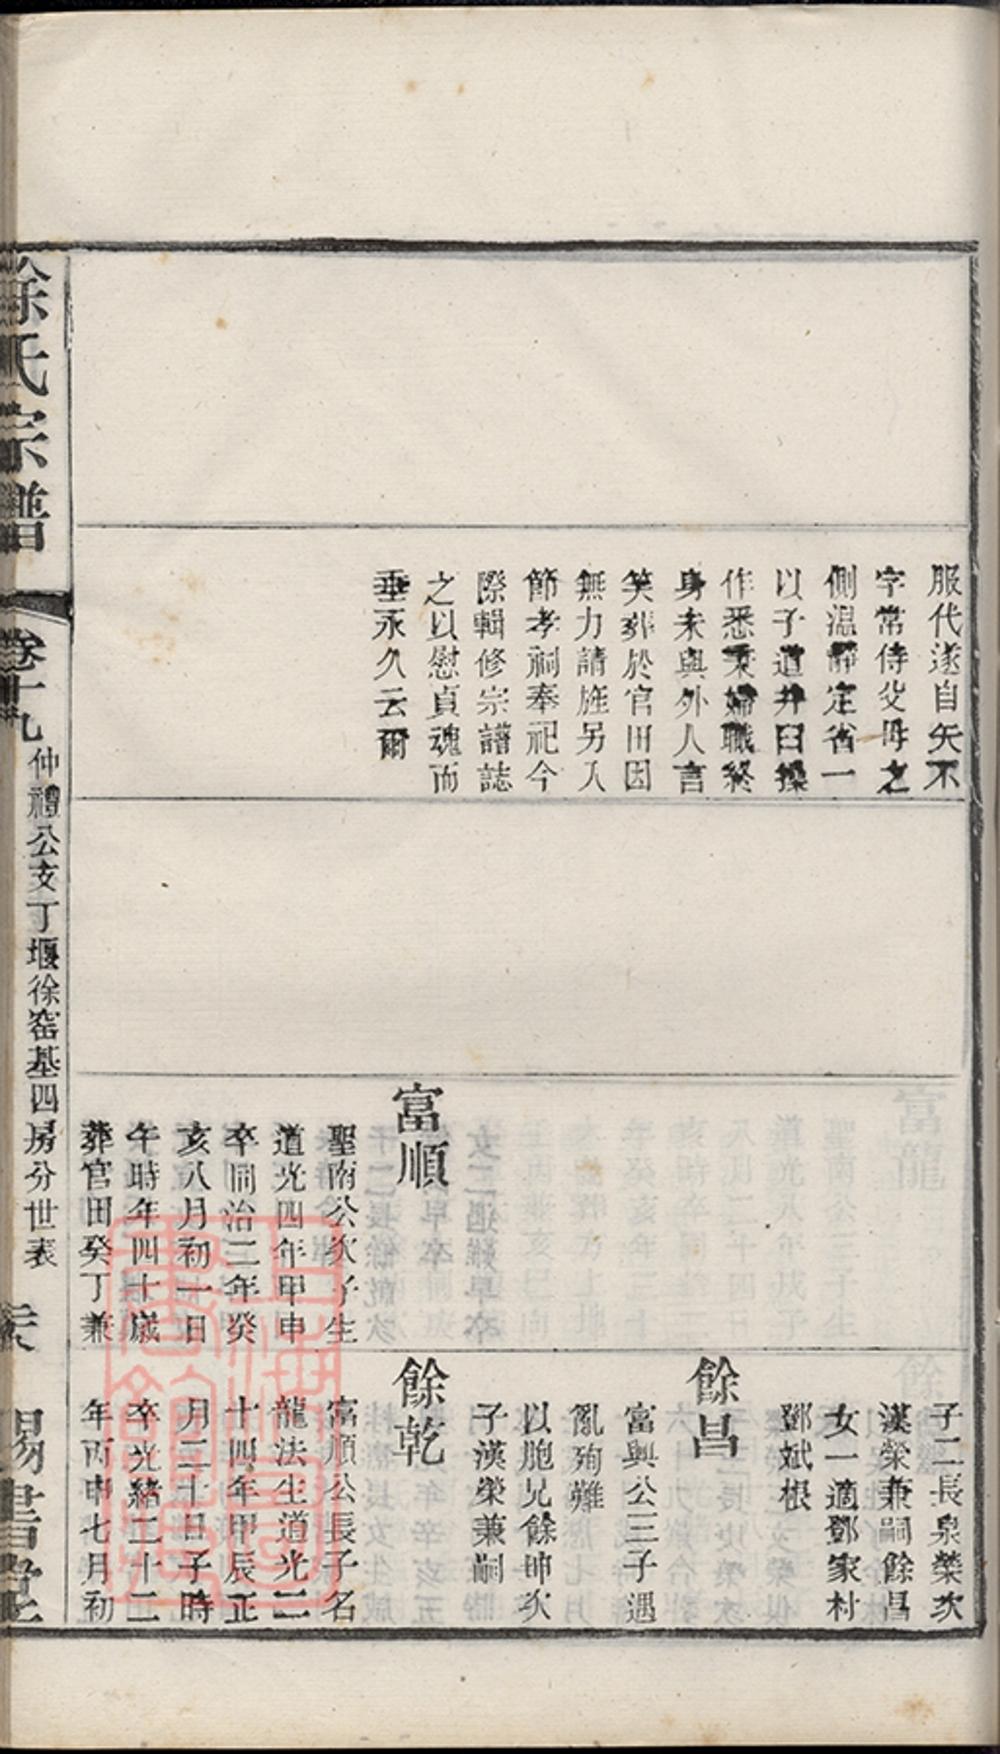 服代遂自矢不
字常侍父母之
側溫凊定省一
以子道井臼操
作悉秉婦職終
身未與外人言
笑葬於官田因
無力請旌另入
節孝祠奉祀今
際輯修宗譜誌
之以慰貞魂而
垂永久云爾
富順
聖南公次子生
道光四年甲申
卒同治二年癸
亥八月初一日
午時年四十歲
葬官田癸丁兼
子二長泉榮次
漢榮兼嗣餘昌
女一適鄧家村
鄧斌根
餘昌
富興公三子遇
亂殉難
以胞兄餘坤次
子漢榮兼嗣
餘乾
富順公長子名
龍法生道光二
十四年甲辰正
月二十日子時
卒光緒二十二
年丙申七月初
徐氏宗譜
卷十九
仲禮公支丁堰徐窑基四房分世表
錫書堂